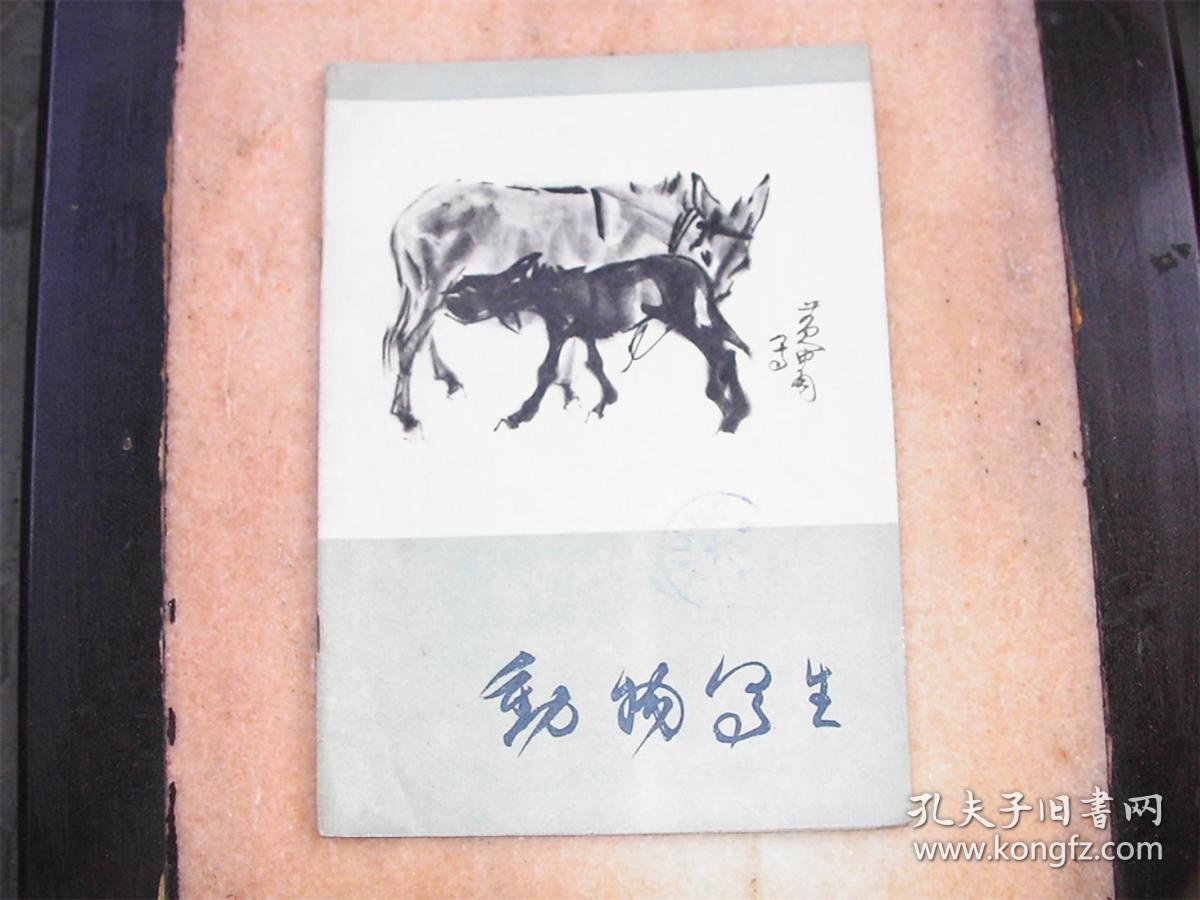 黄胄
写
動物写生
孔夫子旧書网
www.kongfz.com